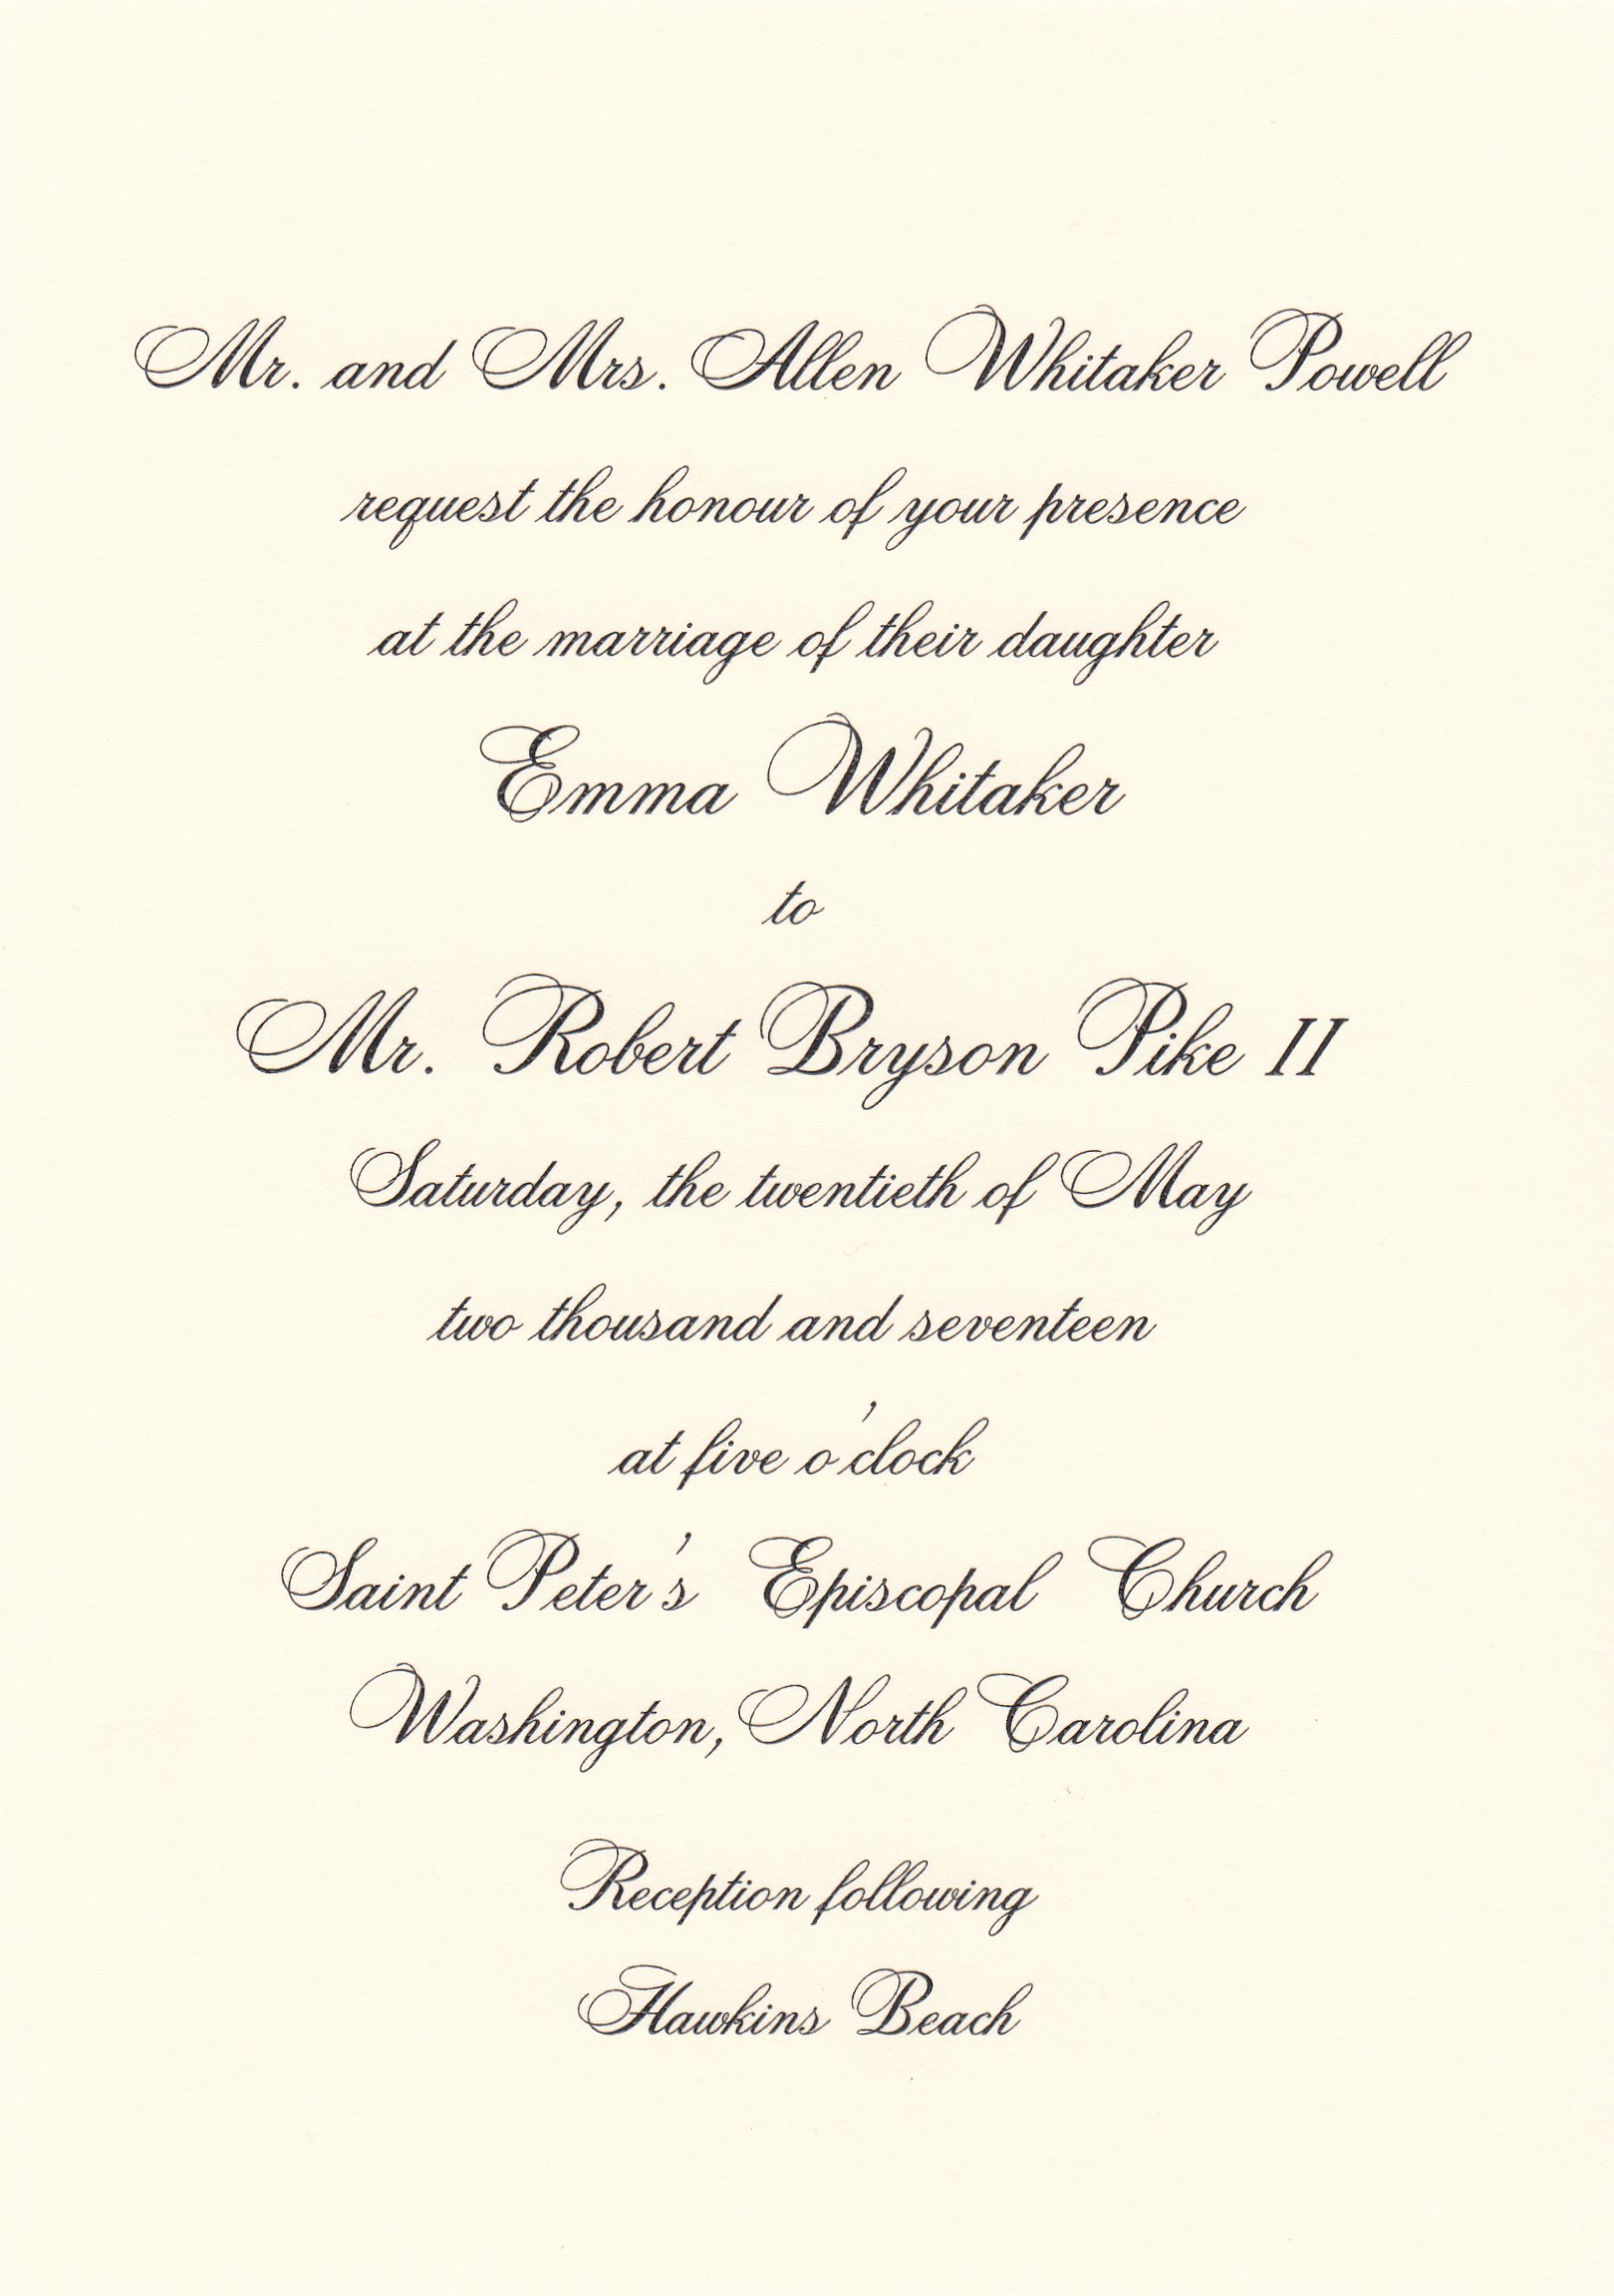 Mr. and Mrs. Allen Whitaker Powell
request the honour of your presence
at the marriage of their daughter
Emma Whitaker
to
Mr. Robert Bryson Pike II
Saturday, the twentieth of May
two thousand and seventeen
at five o'clock
Saint Peter's Episcopal Church
Washington, North Carolina
Reception following
Hawkins Beach